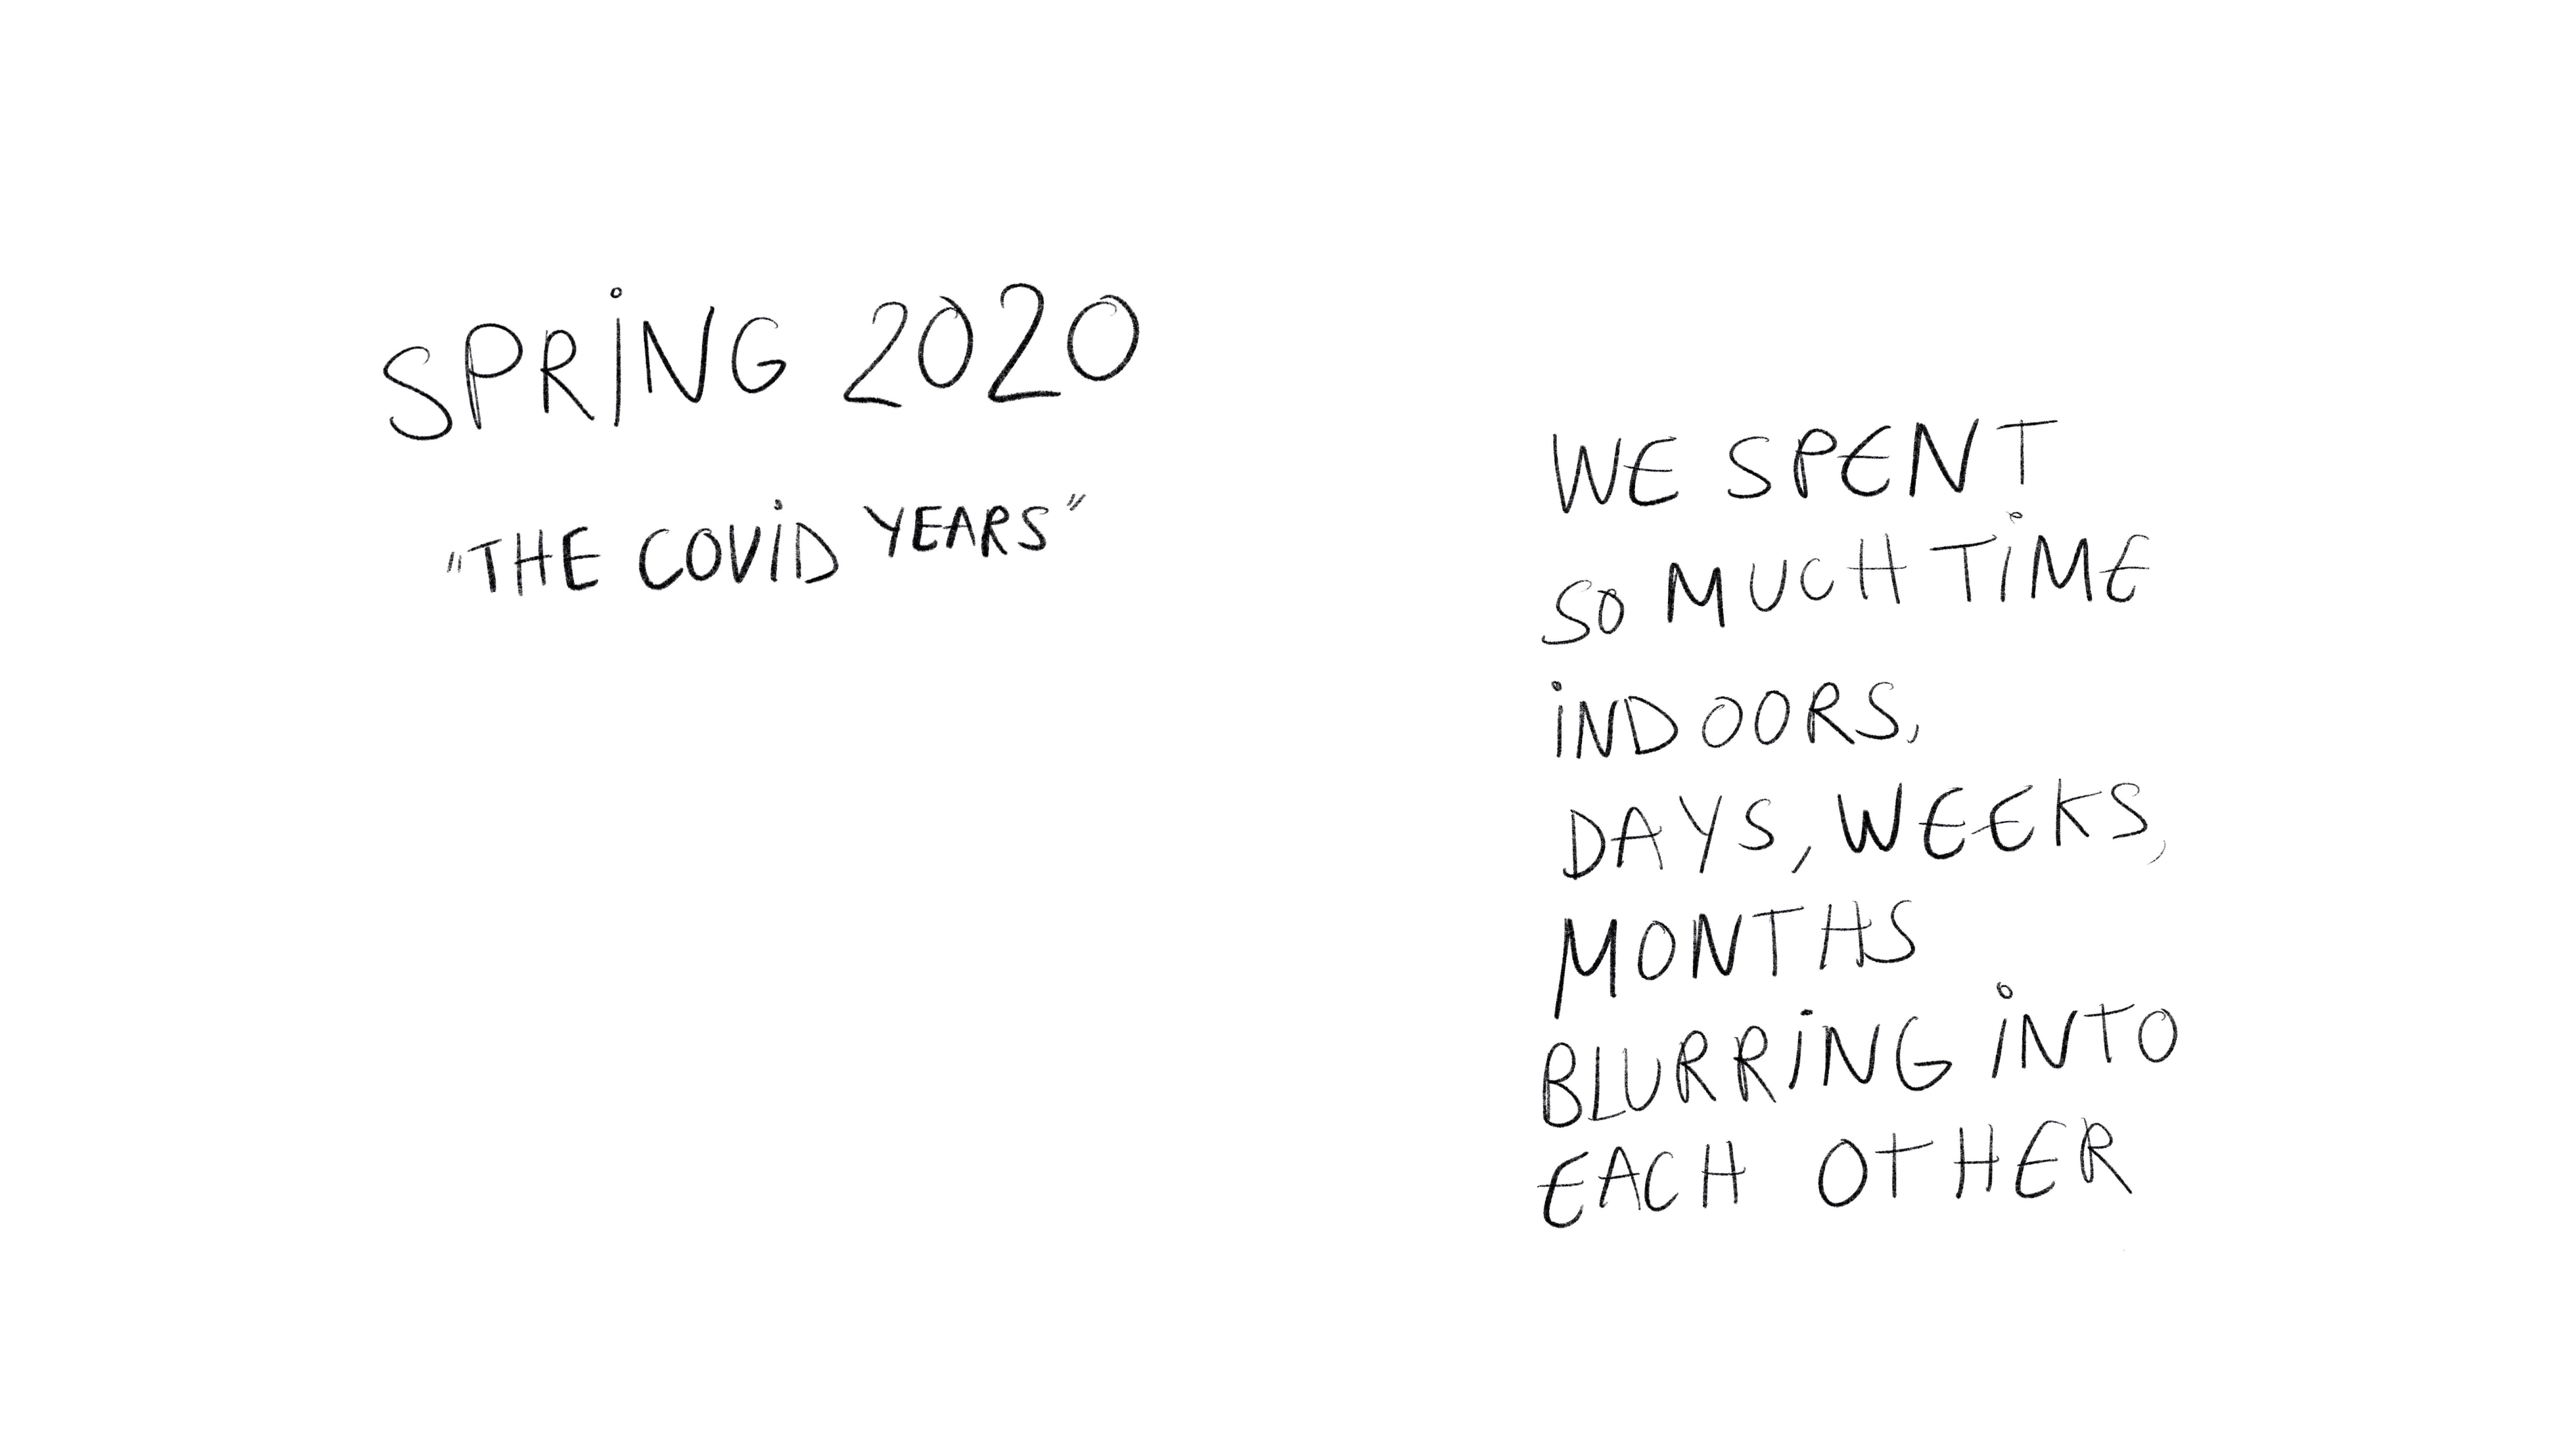 SPRiNG 2020
"THE COViD YEARS"
WE SPENT
SO MUCH TiME
iNDOORS,
DAYS, WEEKS,
MONTHS
BLURRiNG iNTO
EACH OTHER